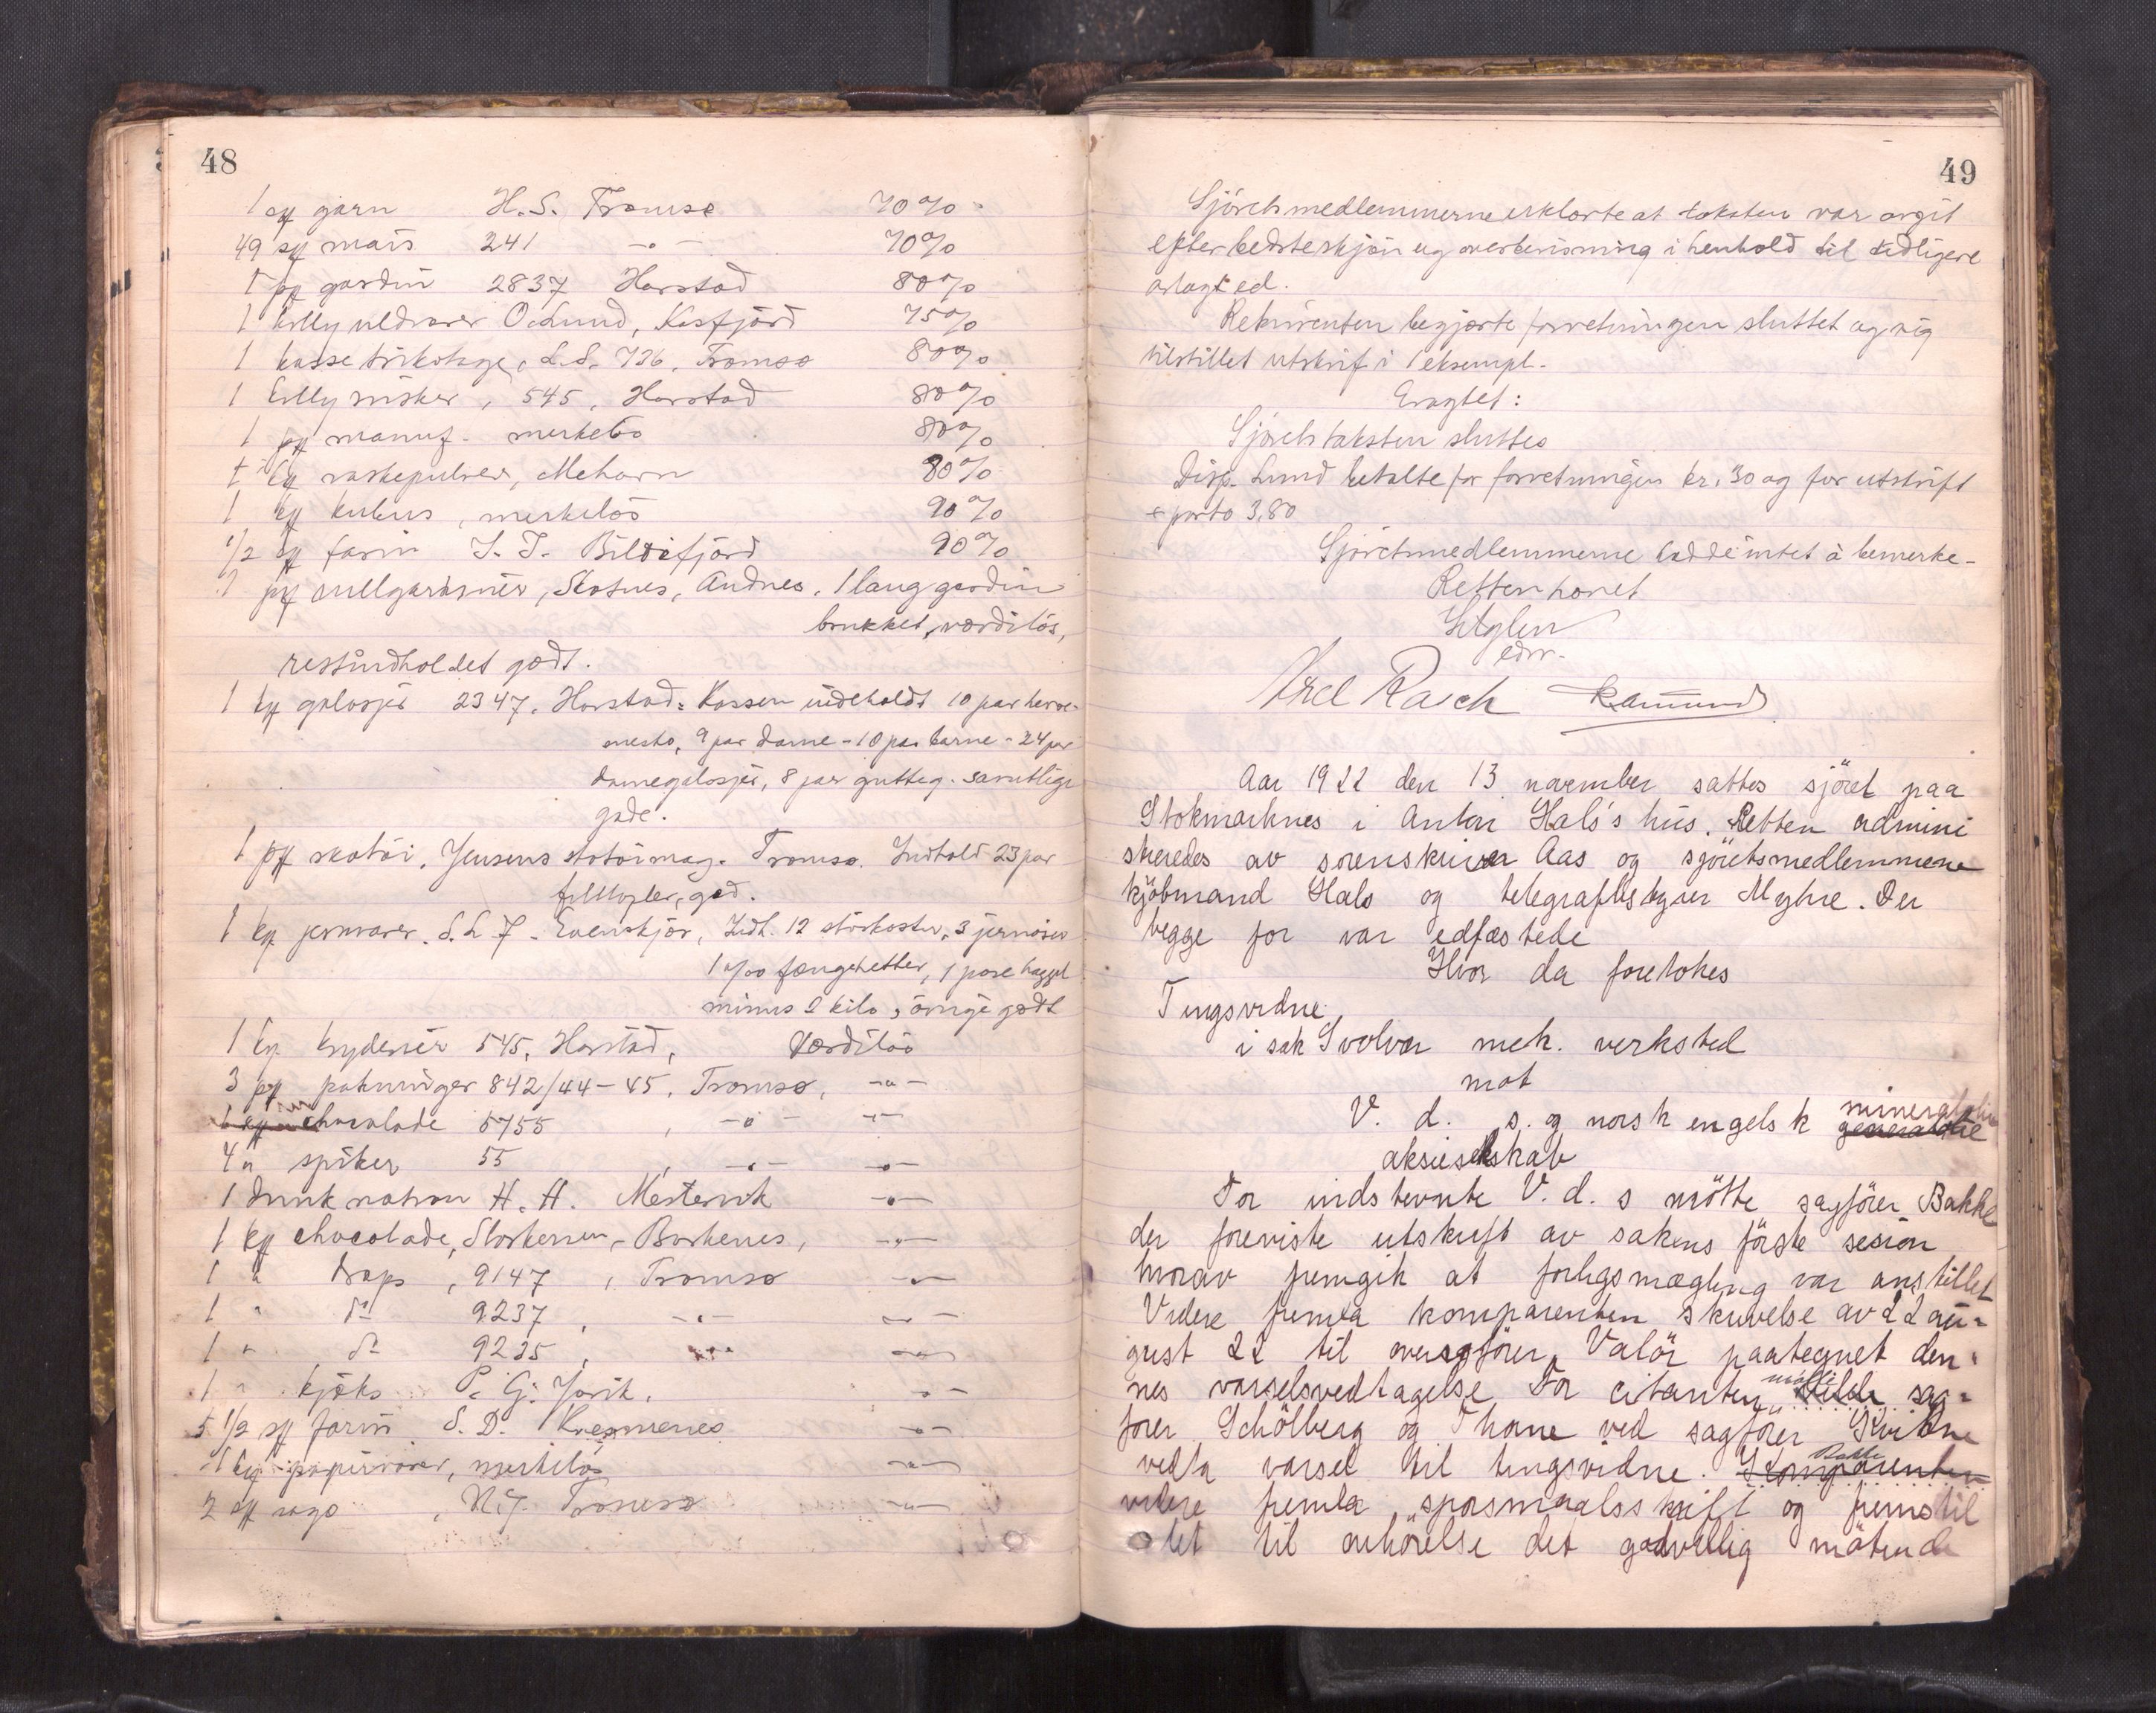 48
1 sæ garn H. S. Tromsø 70%
49 sæ mais 241 -"- 70%
1 pf gardin 2837 Harstad 80%
1 kolly uldvarer O. Lund, Kasfjord 75%
1 kasse trikotage, L. S. 736, Tromsø 80%
1 kolly 545, Harstad 80%
1 pf manuf. merkelös 80%
1 ks vaskepulver, Mehavn 80%
1 merkelös 90%
1/2 sæ farin J. J. 90%
1 pf rullgardiner, Skotnes, Andnes. 1 lang gardin
brukket, værdilös,
restindholdet godt.
1 ks galosjer 2347, Harstad: Kassen indeholdt 10 par herre-
9 par dame - 10 par barne - 24 par
damegalosjer, 8 par gutteg. samtlige
gode.
1 pf skotöi, Jensens skotöimag. Tromsø. Indhold 23 par
god.
1 ks jernvarer S. L. J. Evenskjær, Indh. 12 3
1 0/00 fænghetter, 1 pose haggel
minus 2 kilo, övrige godt
1 ks krydderier 545, Harstad, Værdilös
3 pf pakninger 842/44-45, Tromsø, -"-
chocolade 5755, -"- -"-
4 " spiker 55, -"- -"-
1 dunk natron H. H. Mestervik -"-
1 ks chocolade, Borkenes, -"-
1 " drops, 9147, Tromsø -"-
1 " do 9237, -"- -"-
1 " do 9235, -"- -"-
1 " kjæks P. G. -"-
5 1/2 sæ farin S. D. -"-
1 ks papirvarer, merkelös -"-
2 sæ sago, N. J. Tromsø -"-
49
Sjöretsmedlemmerne erklærte at taksten var avgit
efter bedste skjön og overbevisning i henhold til tidligere
avlagt ed.
Rekvirenten begjærte forretningen sluttet og sig
tilstillet utskrift i 1 eksempl.
Eragtet:
Sjöretstaksten sluttes
Disp. Lund betalte for forretningen kr. 30 og for utskrift
+ porto 3,80
Sjöretsmedlemmerne hadde intet å bemerke.
Retten hævet
edsv.
Axel Rasch
Aar 1922 den 13 november sattes sjöret paa
Stokmarknes i Anton Hals's hus. Retten admini
streredes av sorenskriver Aas og sjöretsmedlemmene
kjöbmand Hals og telegrafbestyrer Myhre. Der
begge for var edfæstede
Hvor da foretokes
Tingsvidne
i sak Svolvær mek. verksted
mot
V. d. s. og norsk engelsk mineralolie
aksieselskab
For indstevnte V. d. s mötte sagförer Bakke
der foreviste utskrift av sakens förste sesion
hvorav fremgik at forligsmægling var anstillet
Videre fremla komparenten skrivelse av 22 au=
gust 22 til oversagförer Valör paategnet den=
nes varselsvedtagelse. For citanten mötte sag=
förer Schölberg og Thane ved sagförer Kvidne
vedta varsel til tingsvidne. Bakke Komparenten
videre fremla spörsmaalsskrift og fremstil
let til avhörelse det godvillig mötende